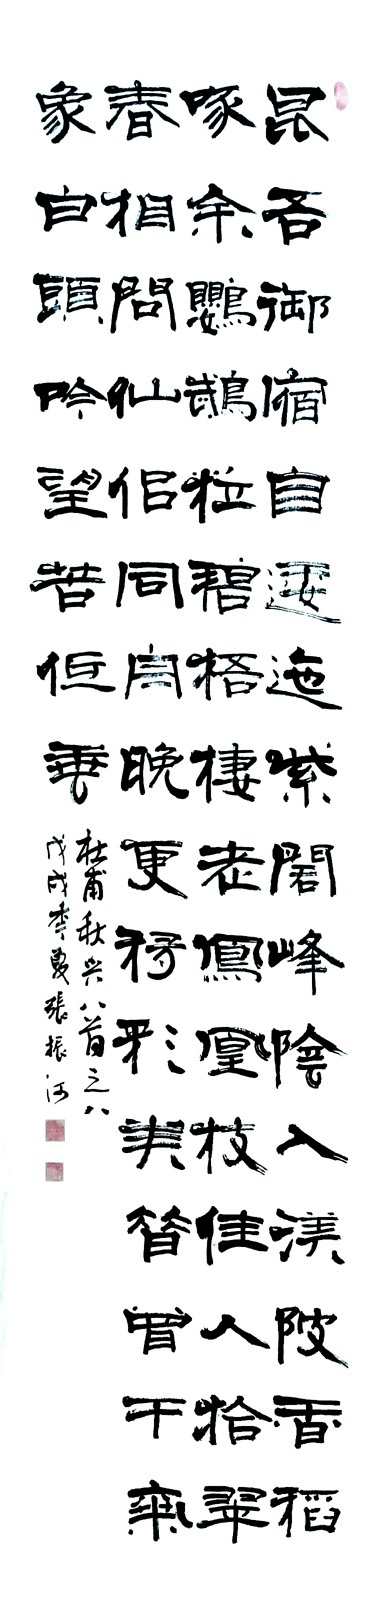 昆吾御宿自逶迤紫閣峰陰入渼陂香稻
啄余鸚鵡粒碧梧棲老鳳凰枝佳人拾翠
春相問仙侶同舟晚更移彩筆昔曾干氣
象白頭吟望苦低垂
杜甫秋兴八首之八
戊戌季夏張振河